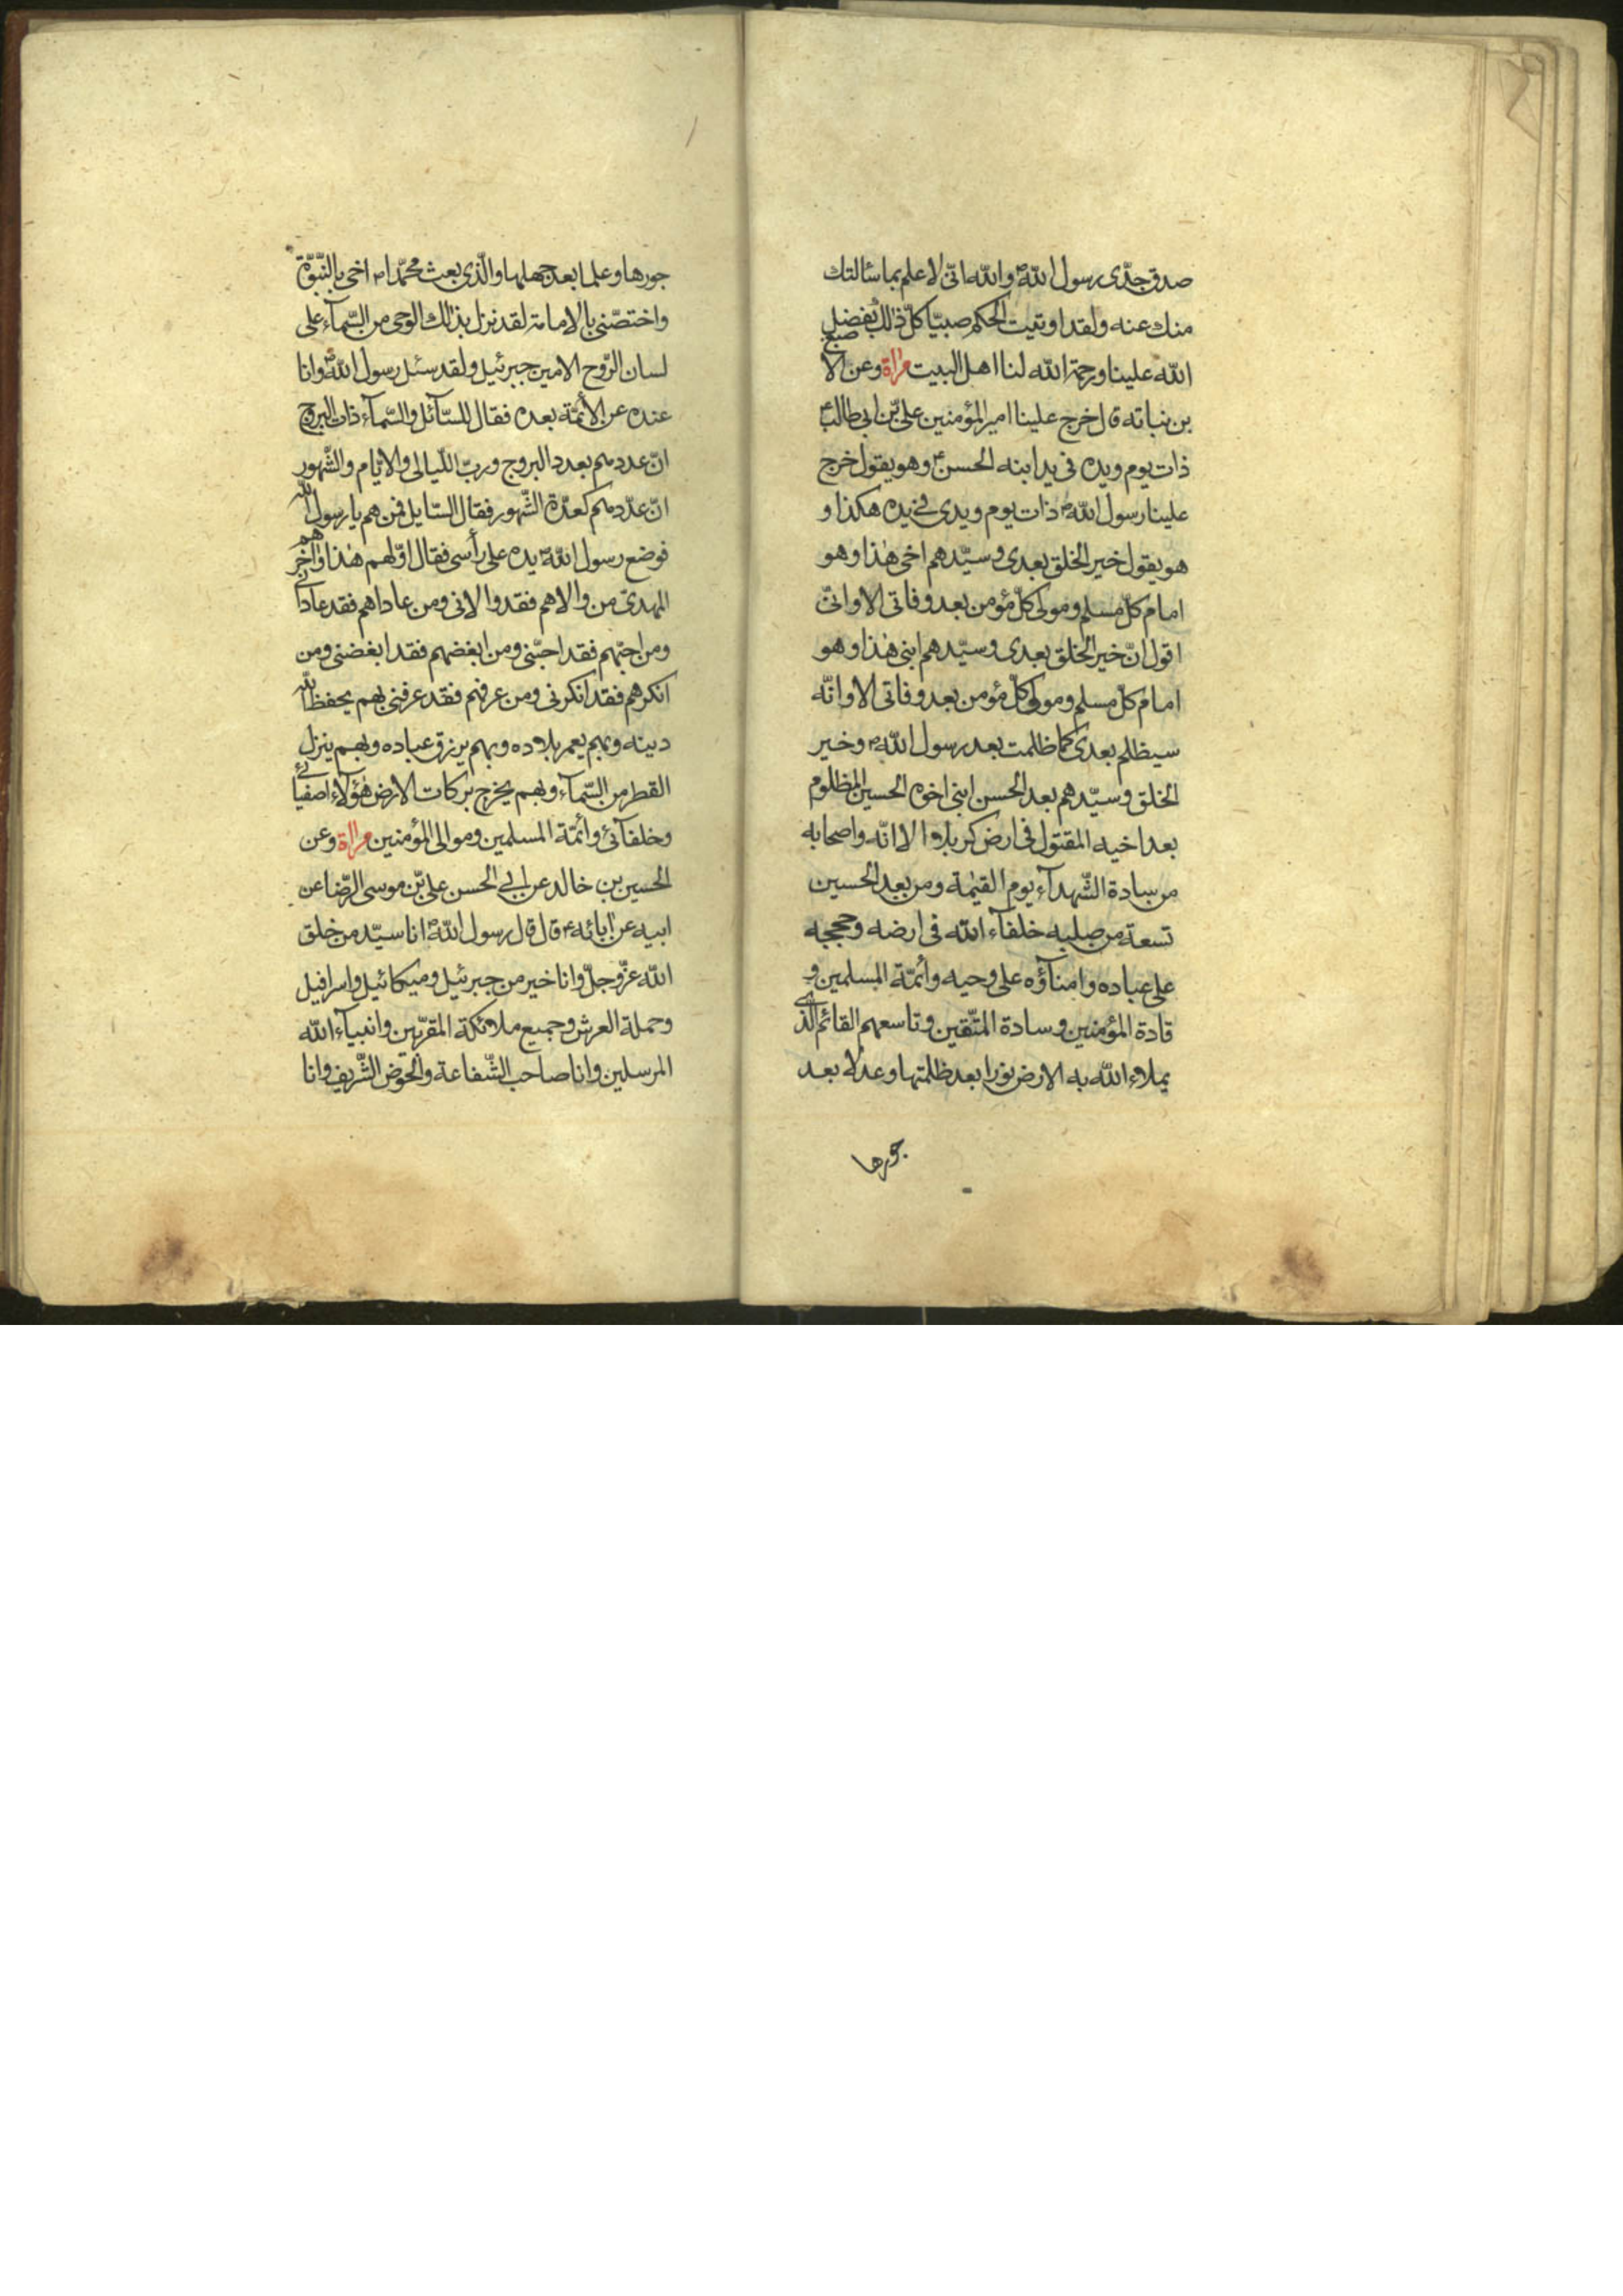 صدق جدّى رسول اللّه ص واللّه انّى لاعلم بما سألتك
منك عنه ولقد اوتيت الحكم صبيّا كلّ ذلك بفضل
اللّه علينا ورحمة اللّه لنا اهل البيت مراة وعن الاصبغ
بن نباته قال خرج علينا امير المؤمنين علىّ بن ابى طالب ع
ذات يوم ويده فى يد ابنه الحسن ع وهو يقول خرج
علينا رسول اللّه ص ذات يوم ويدى فى يده هكذا و
هو يقول خير الخلق بعدى وسيّدهم اخى هذا وهو
امام كلّ مسلم ومولى كلّ مؤمن بعد وفاتى الا وانّى
اقول انّ خير الخلق بعدى وسيّدهم ابنى هذا وهو
امام كلّ مسلم ومولى كلّ مؤمن بعد وفاتى الا وانّه
سيظلم بعدى كما ظلمت بعد رسول اللّه ص وخير
الخلق وسيّدهم بعد الحسن ابنى اخوه الحسين المظلوم
بعد اخيه المقتول فى ارض كربلاء الا انّه واصحابه
من سادة الشّهدآء يوم القيمة ومن بعد الحسين
تسعة من صلبه خلفآء اللّه فى ارضه وحججه
على عباده وامنآؤه على وحيه وأئمّة المسلمين و
قادة المؤمنين وسادة المتّقين وتاسعهم القائم الّذى
يملاء اللّه به الارض نورا بعد ظلمتها وعدلا بعد
جورها
جورها وعلما بعد جهلها والّذى بعث محمّدا ص اخى بالنّبوّة
واختصّنى بالامامة لقد نزل بذلك الوحى من السّمآء على
لسان الرّوح الامين جبرئيل ولقد سئل رسول اللّه ص وانا
عنده عن الأئمّة بعده فقال للسّآئل والسّمآء ذات البروج
انّ عددهم بعدد البروج وربّ اللّيالى والايّام والشّهور
انّ عددهم كعدّة الشّهور فقال السّايل فمن هم يا رسول اللّه
فوضع رسول اللّه ص يده على رأسى فقال اوّلهم هذا وآخرهم
المهدىّ من والاهم فقد والانى ومن عاداهم فقد عادانى
ومن احبّهم فقد احبّنى ومن ابغضهم فقد ابغضنى ومن
انكرهم فقد انكرنى ومن عرفهم فقد عرفنى بهم يحفظ اللّه
دينه وبهم يعمر بلاده وبهم يرزق عباده وبهم ينزل
القطر من السّمآء وبهم يخرج بركات الارض هؤلآء اصفيائى
وخلفآئى وأئمّة المسلمين وموالى المؤمنين مراة وعن
الحسين بن خالد عن ابى الحسن علىّ بن موسى الرّضا عن
ابيه عن ابائه ع قال قال رسول اللّه ص انا سيّد من خلق
اللّه عزّ وجلّ وانا خير من جبرئيل وميكائيل واسرافيل
وحملة العرش وجميع ملائكة المقرّبين وانبيآء اللّه
المرسلين وانا صاحب الشّفاعة والحوض الشّريف وانا